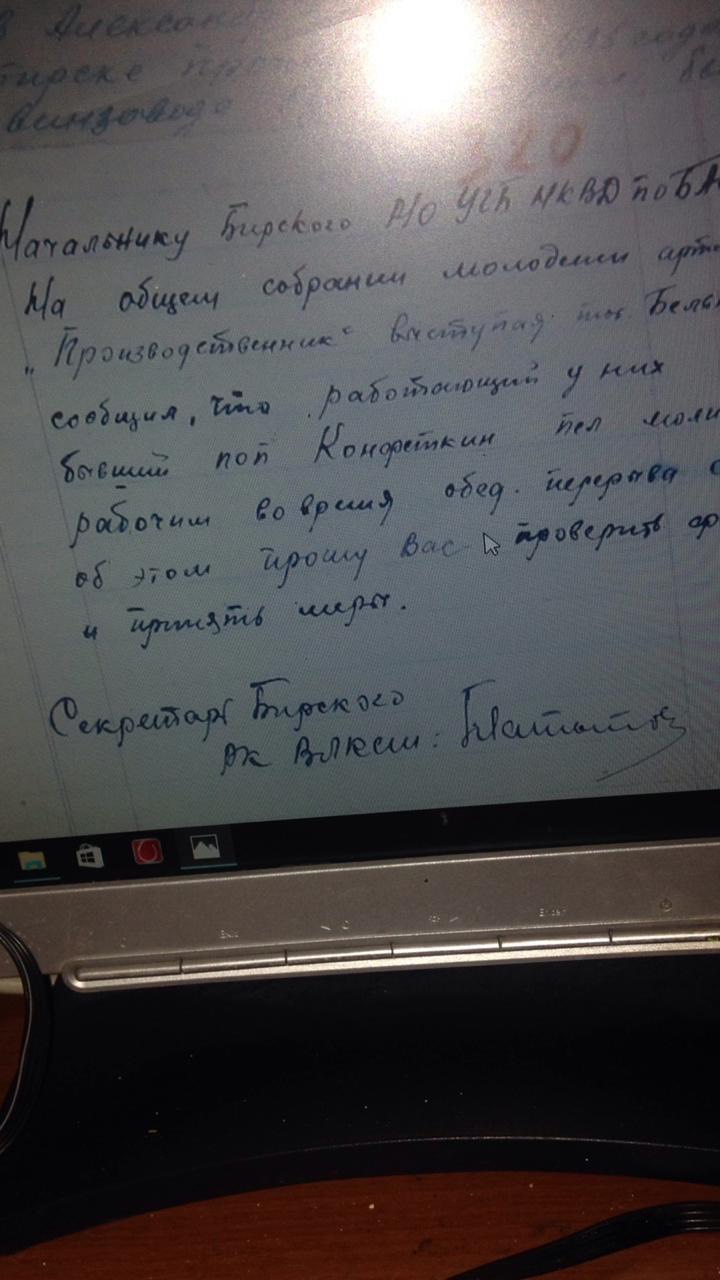 в Александ
винзавода
320
Начальнику Бирского Р/О УГБ НКВД по БА
На общем собрании молодежи арт
„Производственник" выступая тов. Бель
сообщил, что работающий у них
бывший поп Конфеткин пел моли
рабочим во время обед. перерыва
об этом прошу Вас проверить ф
и принять меры.
Секретарь Бирского
РК ВЛКСМ:
Exit
Enter